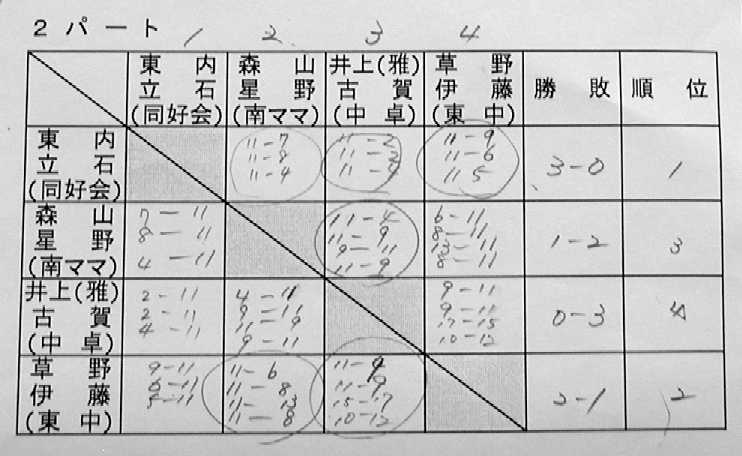 2パート 1 2 3 4
東内 立石 (同好会) 森山 星野 (南ママ) 井上(雅) 古賀 (中卓) 草野 伊藤 (東中) 勝敗 順位
東内 立石 (同好会)
11-7 11-8 11-4
11-2 11-2 11-4
11-9 11-6 11 5
3-0 1
森山 星野 (南ママ)
7-11 8-11 4-11
11-4 11-9 9-11 11-9
6-11 8-11 13-11 8-11
1-2 3
井上(雅) 古賀 (中卓)
2-11 2-11 4-11
4-11 9-11 11-9 9-11
9-11 9-11 17-15 10-12
0-3 4
草野 伊藤 (東中)
9-11 6-11 5-11
11-6 11-8 11-13 11-8
11-9 11-9 15-17 10-12
2-1 2